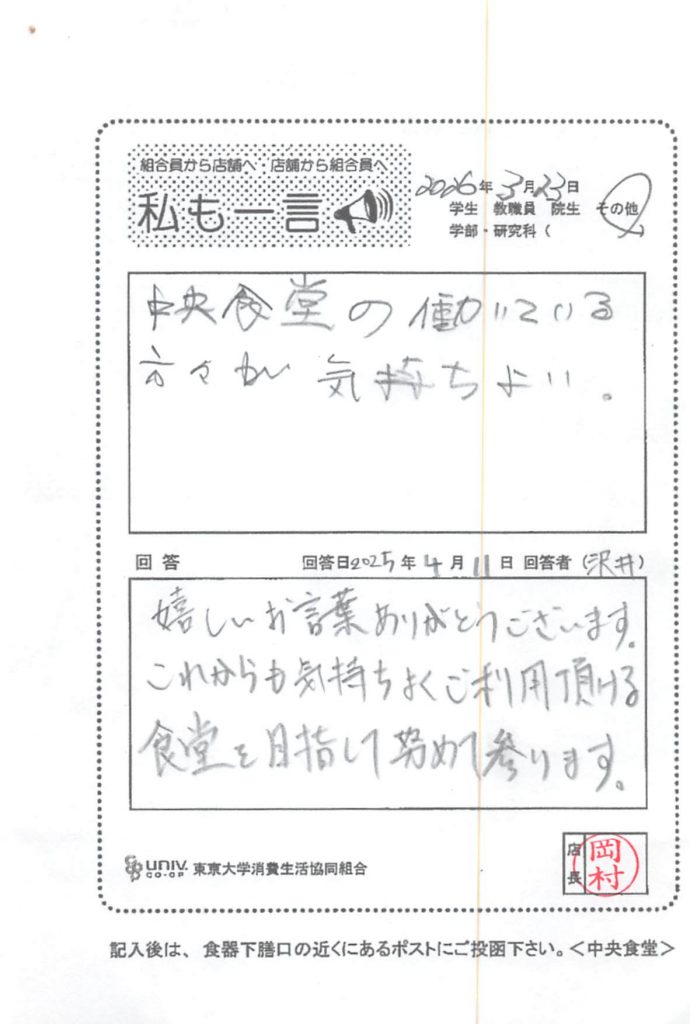 組合員から店舗へ 店舗から組合員へ
私も一言
2026年3月23日
学生 教職員 院生 その他
学部・研究科(
中央食堂の働いている
方々が気持ちよい。
回答 回答日2025年4月11日 回答者(沢井)
嬉しいお言葉ありがとうございます。
これからも気持ちよくご利用頂ける
食堂を目指して努めて参ります。
UNIV. CO-OP 東京大学消費生活協同組合
店長 岡村
記入後は、食器下膳口の近くにあるポストにご投函下さい。<中央食堂>